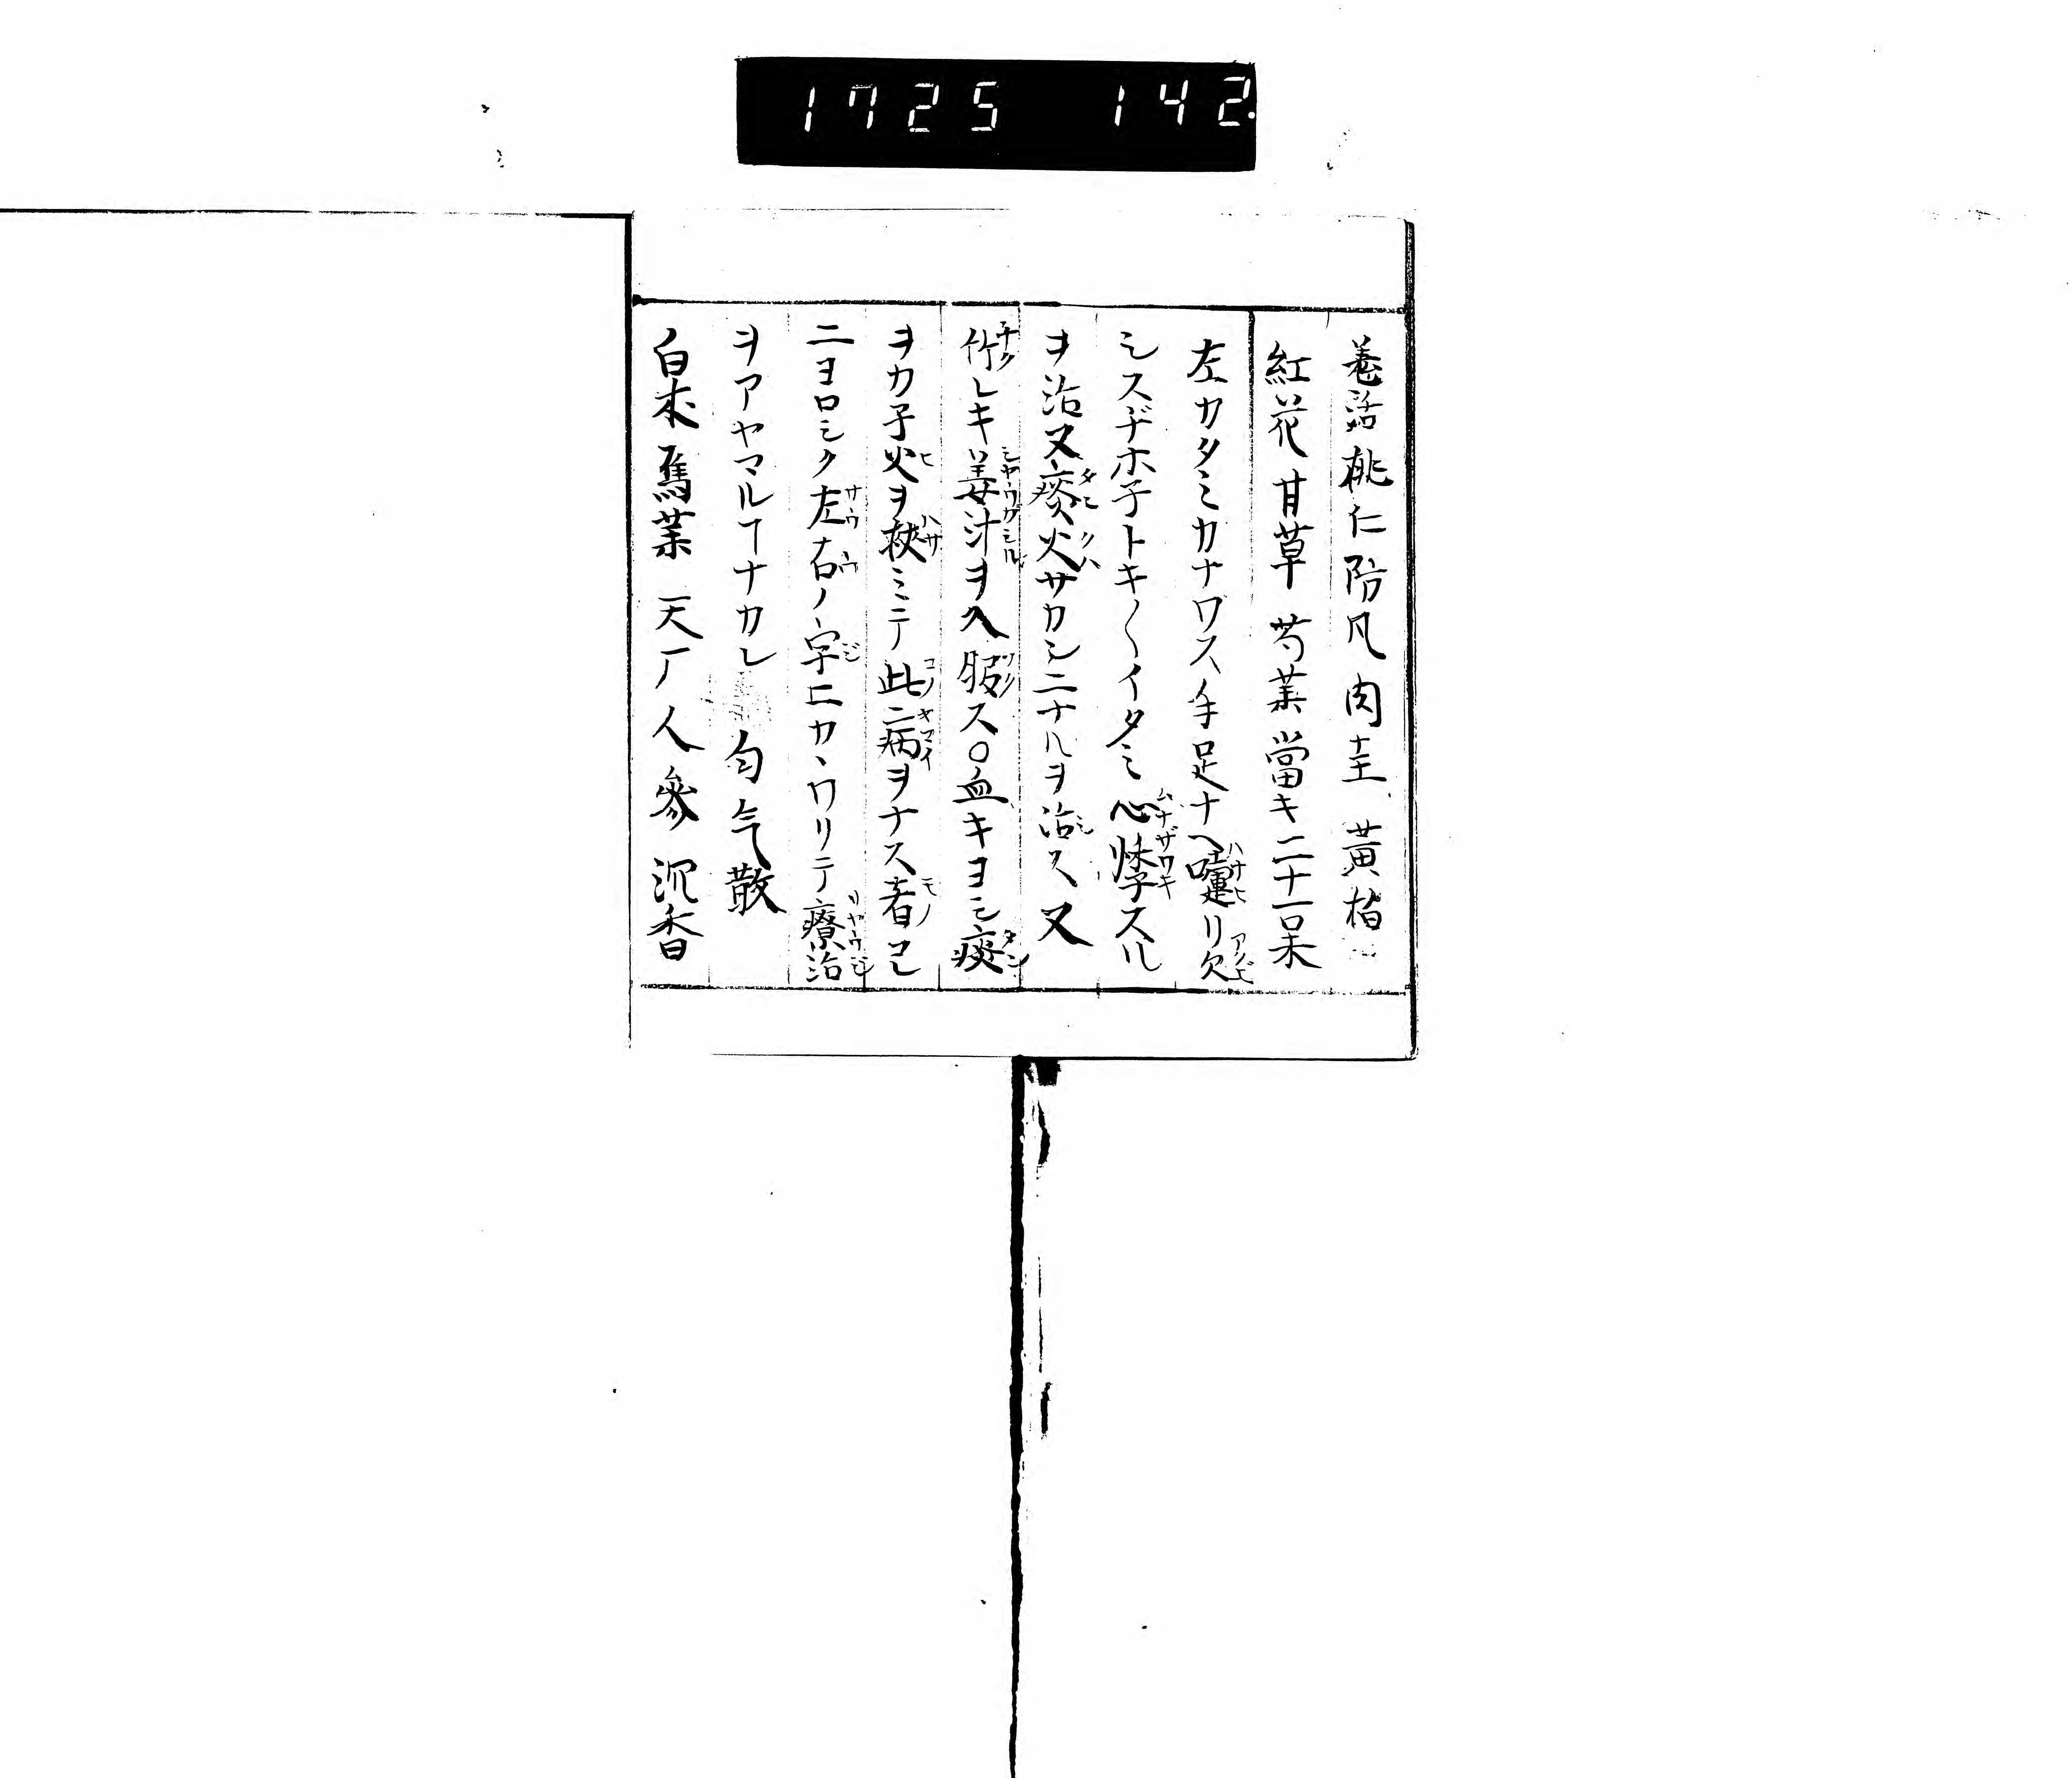 1725 142
羌活桃仁防凡肉圭黄栢
紅花甘草芍薬當キ二十一味
左カタミカナワス手足ナヘ嚏リ欠
シスヂホ子トキ〱イタミ心悸スル
ヲ治又痰火サカンニナルヲ治ス又
竹レキ姜汁ヲ入服ス〇血キヨシ痰
ヲカ子火ヲ挾ミテ此二病ヲナス者コレ
ニヨロシク左右ノ字ニカヽワリテ療治
ヲアヤマルヿナカレ 匀气散
白朮 烏薬 天广 人參 沉香